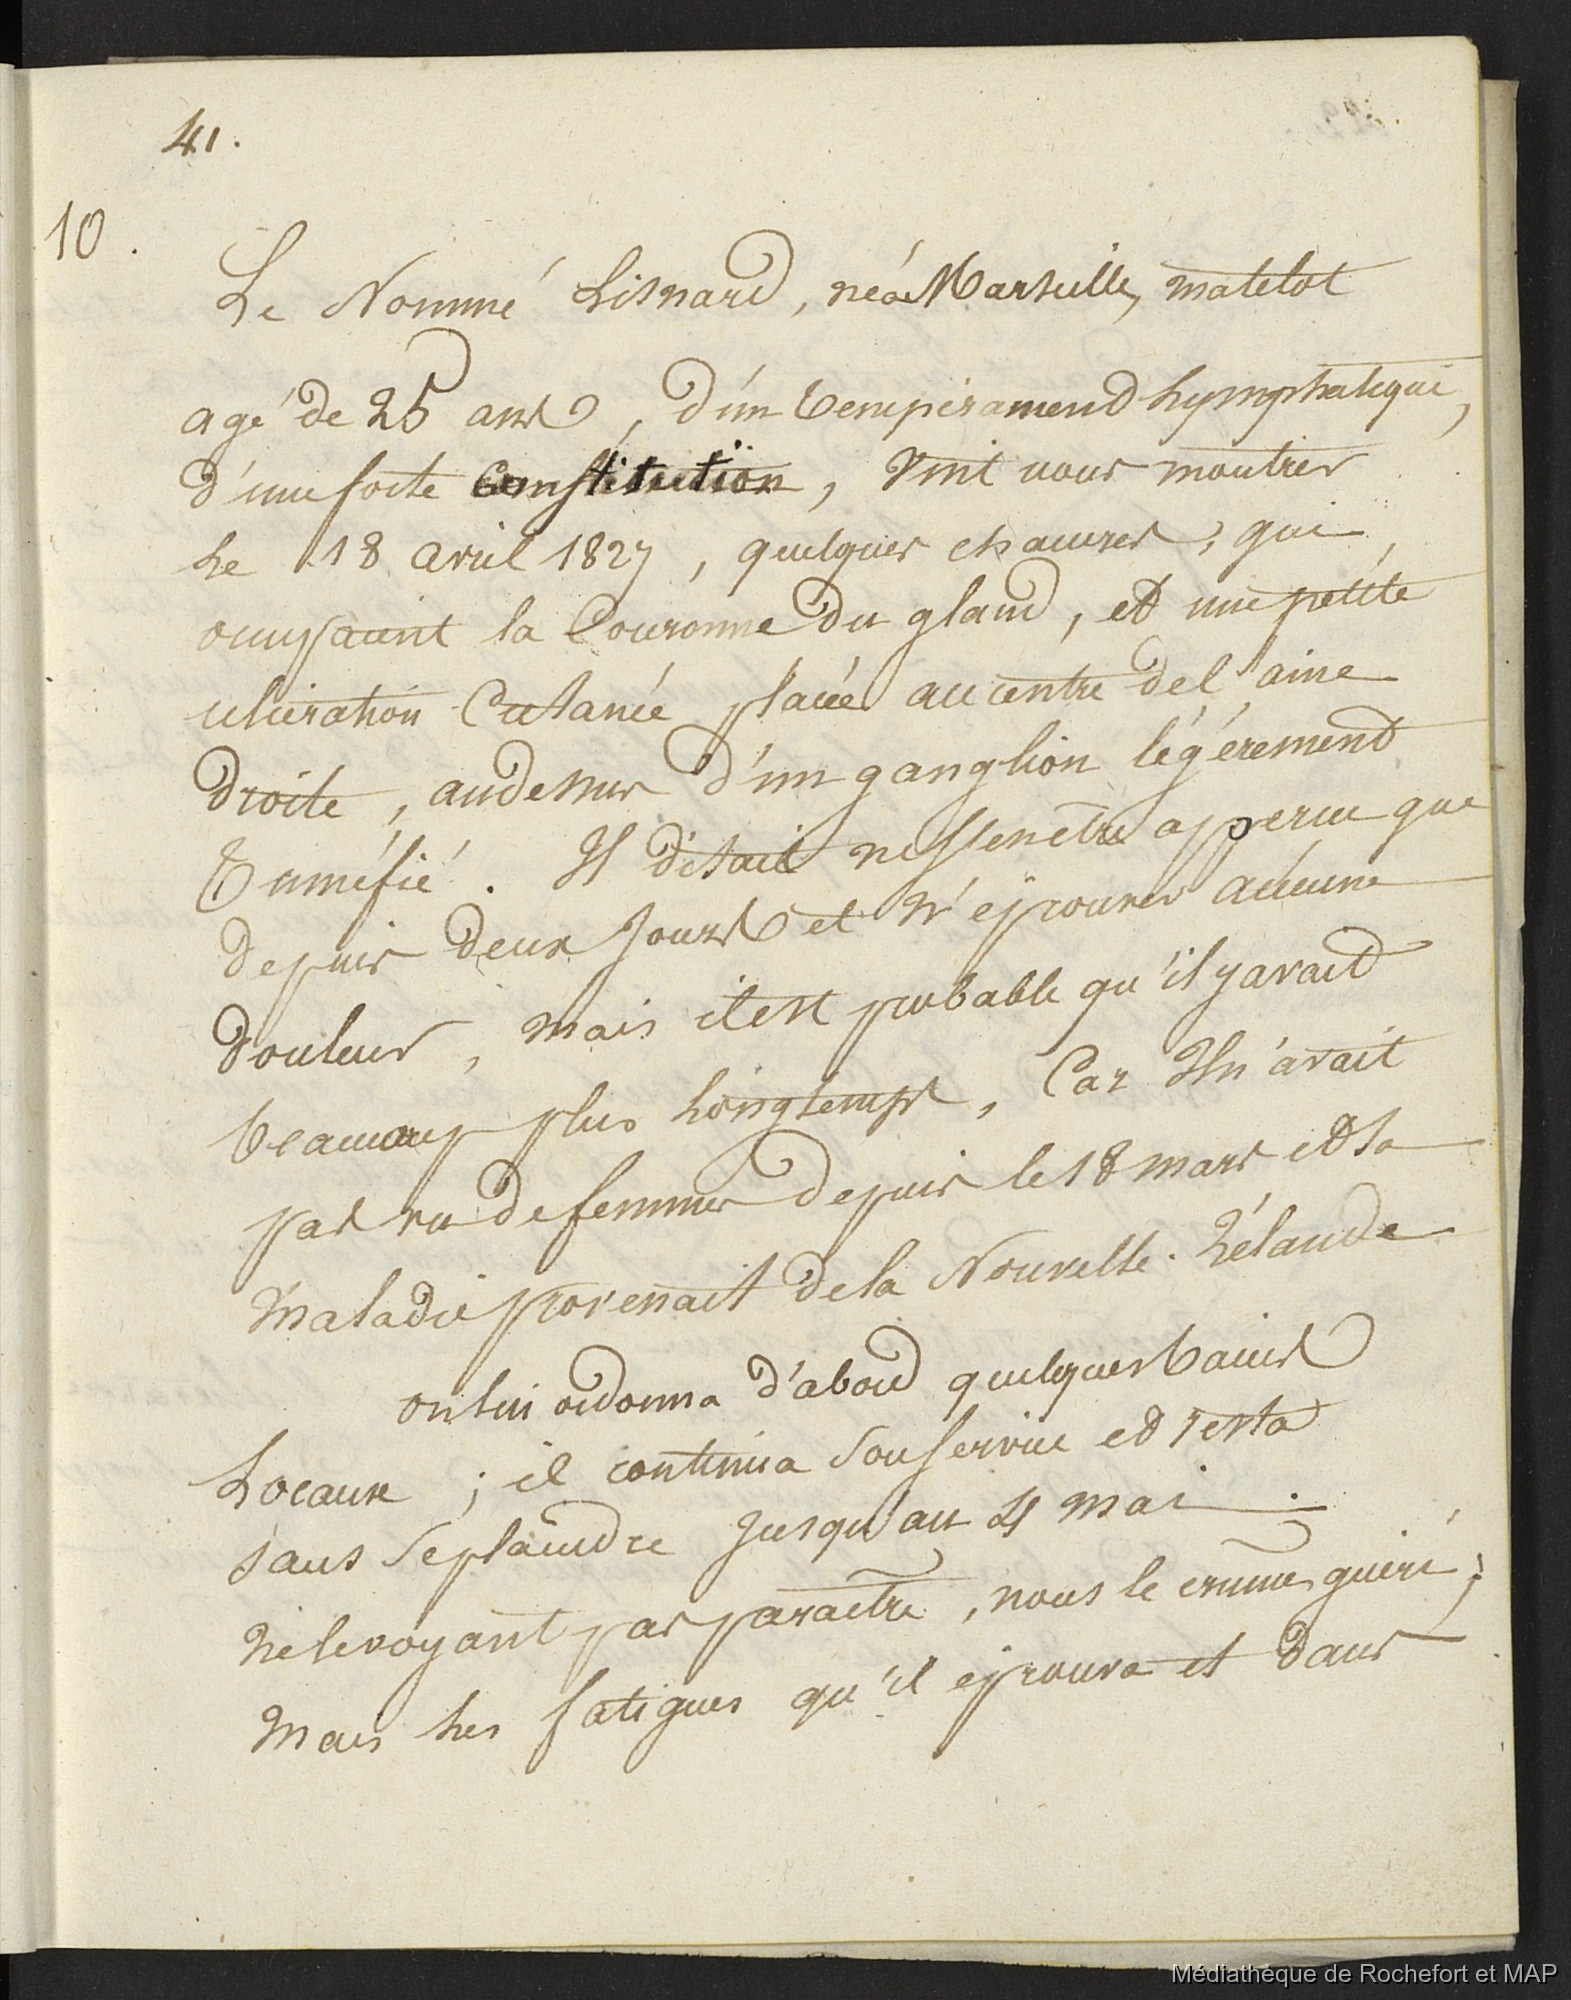 41.
10.
Le Nommé Lisnard, né à Marseille, matelot
agé de 25 ans, d'un temperament Lymphatique,
d'une forte Constitution, vint nous montrer
Le 18 avril 1827, quelques chancres, qui
occupaient la Couronne du gland, et une petite
ulceration Cutanée placée au centre de l'aine
droite, au dessus d'un ganglion légérement
Tuméfié. Il disait ne s'en être apperçu que
depuis deux Jours et N'éprouver aucune
douleur, mais il est probable qu'il y avait
beaucoup plus Longtemps, Car Il n'avait
pas vu de femmes depuis le 18 mars et sa
Maladie provenait de la Nouvelle-Zélande
on lui ordonna d'abord quelques bains
Locaux ; il continua son service et resta
sans se plaindre Jusqu'au 4 mai.
Ne le voyant pas paraetre, nous le crumes guéri ;
Mais Les fatigues qu'il éprouva et dans
Médiathèque de Rochefort et MAP